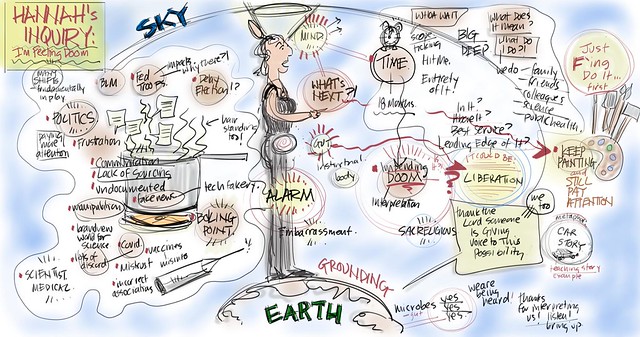 HANNAH'S
INQUIRY:
I'm Feeling DOOM
SKY
MANY
SHIFTS
fundamentally
in play
BLM
Fed
TROOPS
impacts
why there?!
Delay
Election!?
POLITICS
paying
more
attention
Frustration
hair
standing
too!
Communication
Lack of Sourcing
undocumented
fake news
tech fakery?
manipulation
brand new
world for
science
lots of
discord
Covid
vaccines
Mistrust misinfo
incorrect
associations
SCIENTIST
MEDICAL
BOILING
POINT
MIND
WHAT'S
NEXT?!
GUT
instinctual
body
ALARM
Embarrassment.
GROUNDING
EARTH
WHOA WAIT
ticking
TIME
BIG
DEEP
Hit Me.
Entirety
of It!
18 Months
What Does
it Mean?
What do
I Do?!
we do - family
friends
colleagues
science
public health.
In It?
Have It?
Best Service?
Leading Edge of It?
Impending
DOOM
Interpretation
SACRELIGIOUS
I COULD BE:
LIBERATION
we
too
thank the
Lord someone
is Giving
Voice to This
Possibility
Just
F'ing
Do it...
First
KEEP
PAINTING
and
STILL
PAY
ATTENTION
METAPHOR
CAR
STORY
teaching story
example
microbes
yes
yes
yes
we are
being
heard!
thanks
for interpreting
us! listen!
bring up